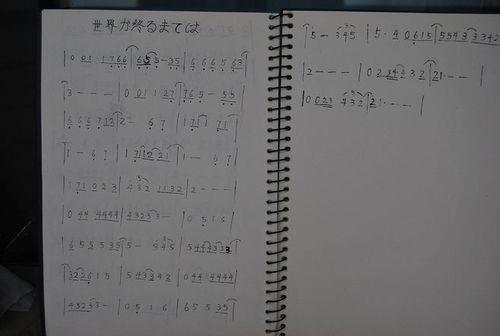 世界が終るまでは
| 0 0 1 1 7 6 6 | 6 5 5 - 3 5 | 6 6 6 5 6 3 |
| 3 - - - | 0 0 1 1 2 7 | 7 6 5 - 5 5 |
| 6 6 6 7 1 2 | 2 - 6 7 | 1 7 1 1 7 1 |
| 1 - 6 7 | 1 7 1 2 2 1 | 1 - 6 7 |
| 1 7 1 0 2 2 3 | 4 3 2 1 1 3 2 | 2 - - - |
| 0 4 4 4 4 4 4 | 4 3 2 3 3 - | 0 5 1 6 |
| 6 5 5 5 3 5 | 5 - 3 4 5 | 5 4 4 3 3 3 |
| 3 2 2 6 1 5 | 5 4 3 3 4 2 | 0 4 4 4 4 4 4 |
| 4 3 2 3 3 - | 0 5 1 6 | 6 5 5 3 5 |
| 5 - 3 4 5 | 5 · 4 0 6 1 5 | 5 5 4 3 3 3 4 2 |
| 2 - - - | 0 2 3 4 2 3 2 | 2 1 · - - |
| 0 0 2 3 4 3 2 | 2 1 · - - - |